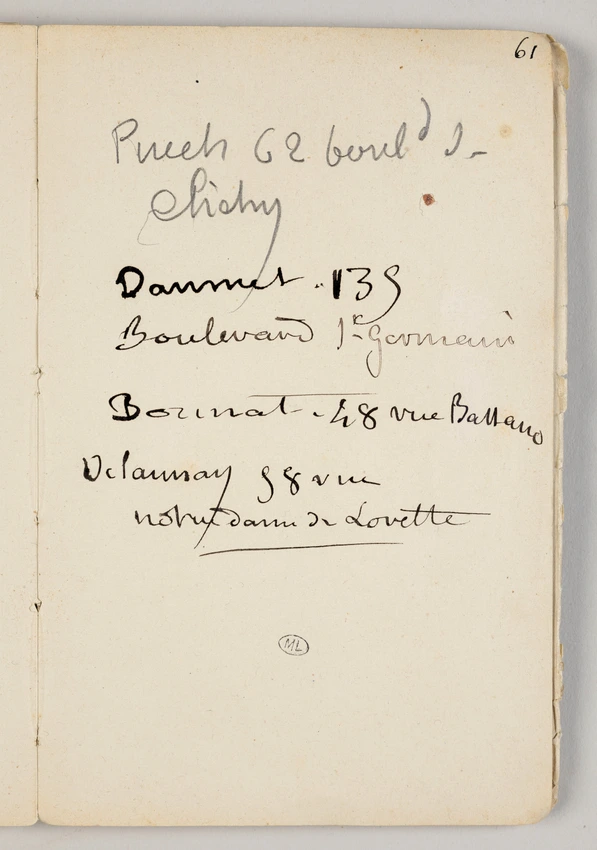 61
Puech 62 boul^d d-
Clichy
Daumet. 139
Boulevard S^t Germain
Bonnat. 48 rue Bassano
Delaunay 98 rue
notre dame de Lorette
ML